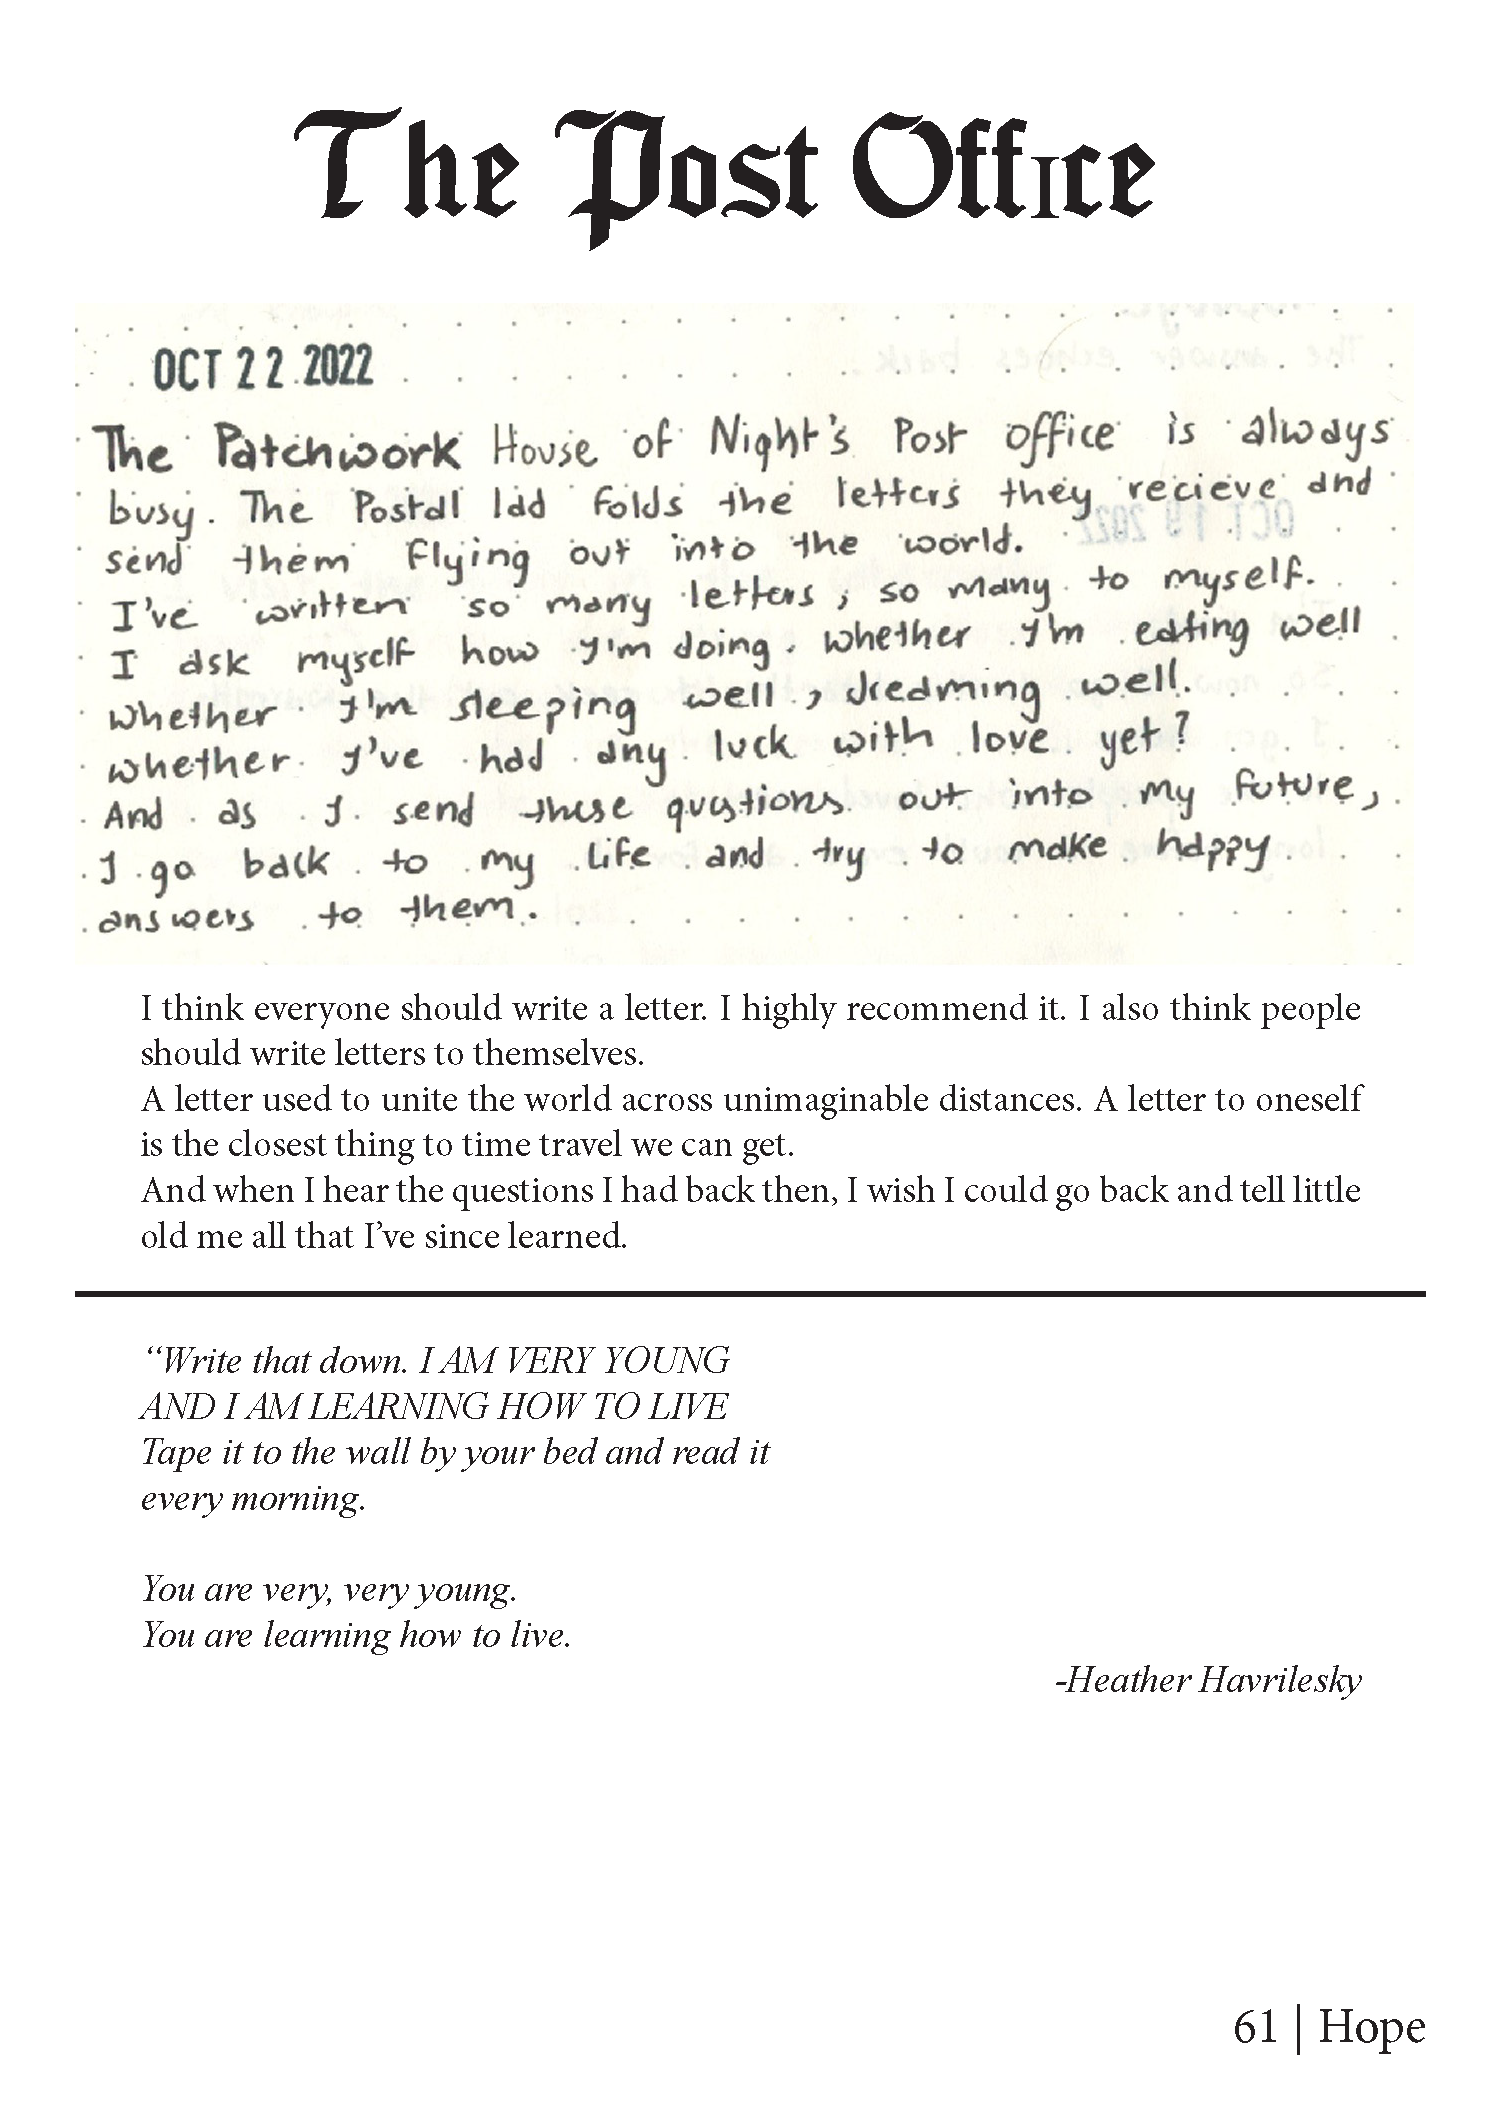 The Post Office
OCT 22 2022
The Patchwork House of Night's Post office is always
busy. The Postal lad folds the letters they recieve and
send them flying out into the world.
I've written so many letters, so many to myself.
I ask myself how I'm doing. whether I'm eating well
whether I'm sleeping well, dreaming well.
whether I've had any luck with love yet?
And as I send these questions out into my future,
I go back to my life and try to make happy
answers to them.
I think everyone should write a letter. I highly recommend it. I also think people
should write letters to themselves.
A letter used to unite the world across unimaginable distances. A letter to oneself
is the closest thing to time travel we can get.
And when I hear the questions I had back then, I wish I could go back and tell little
old me all that I've since learned.
“Write that down. I AM VERY YOUNG
AND I AM LEARNING HOW TO LIVE
Tape it to the wall by your bed and read it
every morning.
You are very, very young.
You are learning how to live.
-Heather Havrilesky
61 | Hope